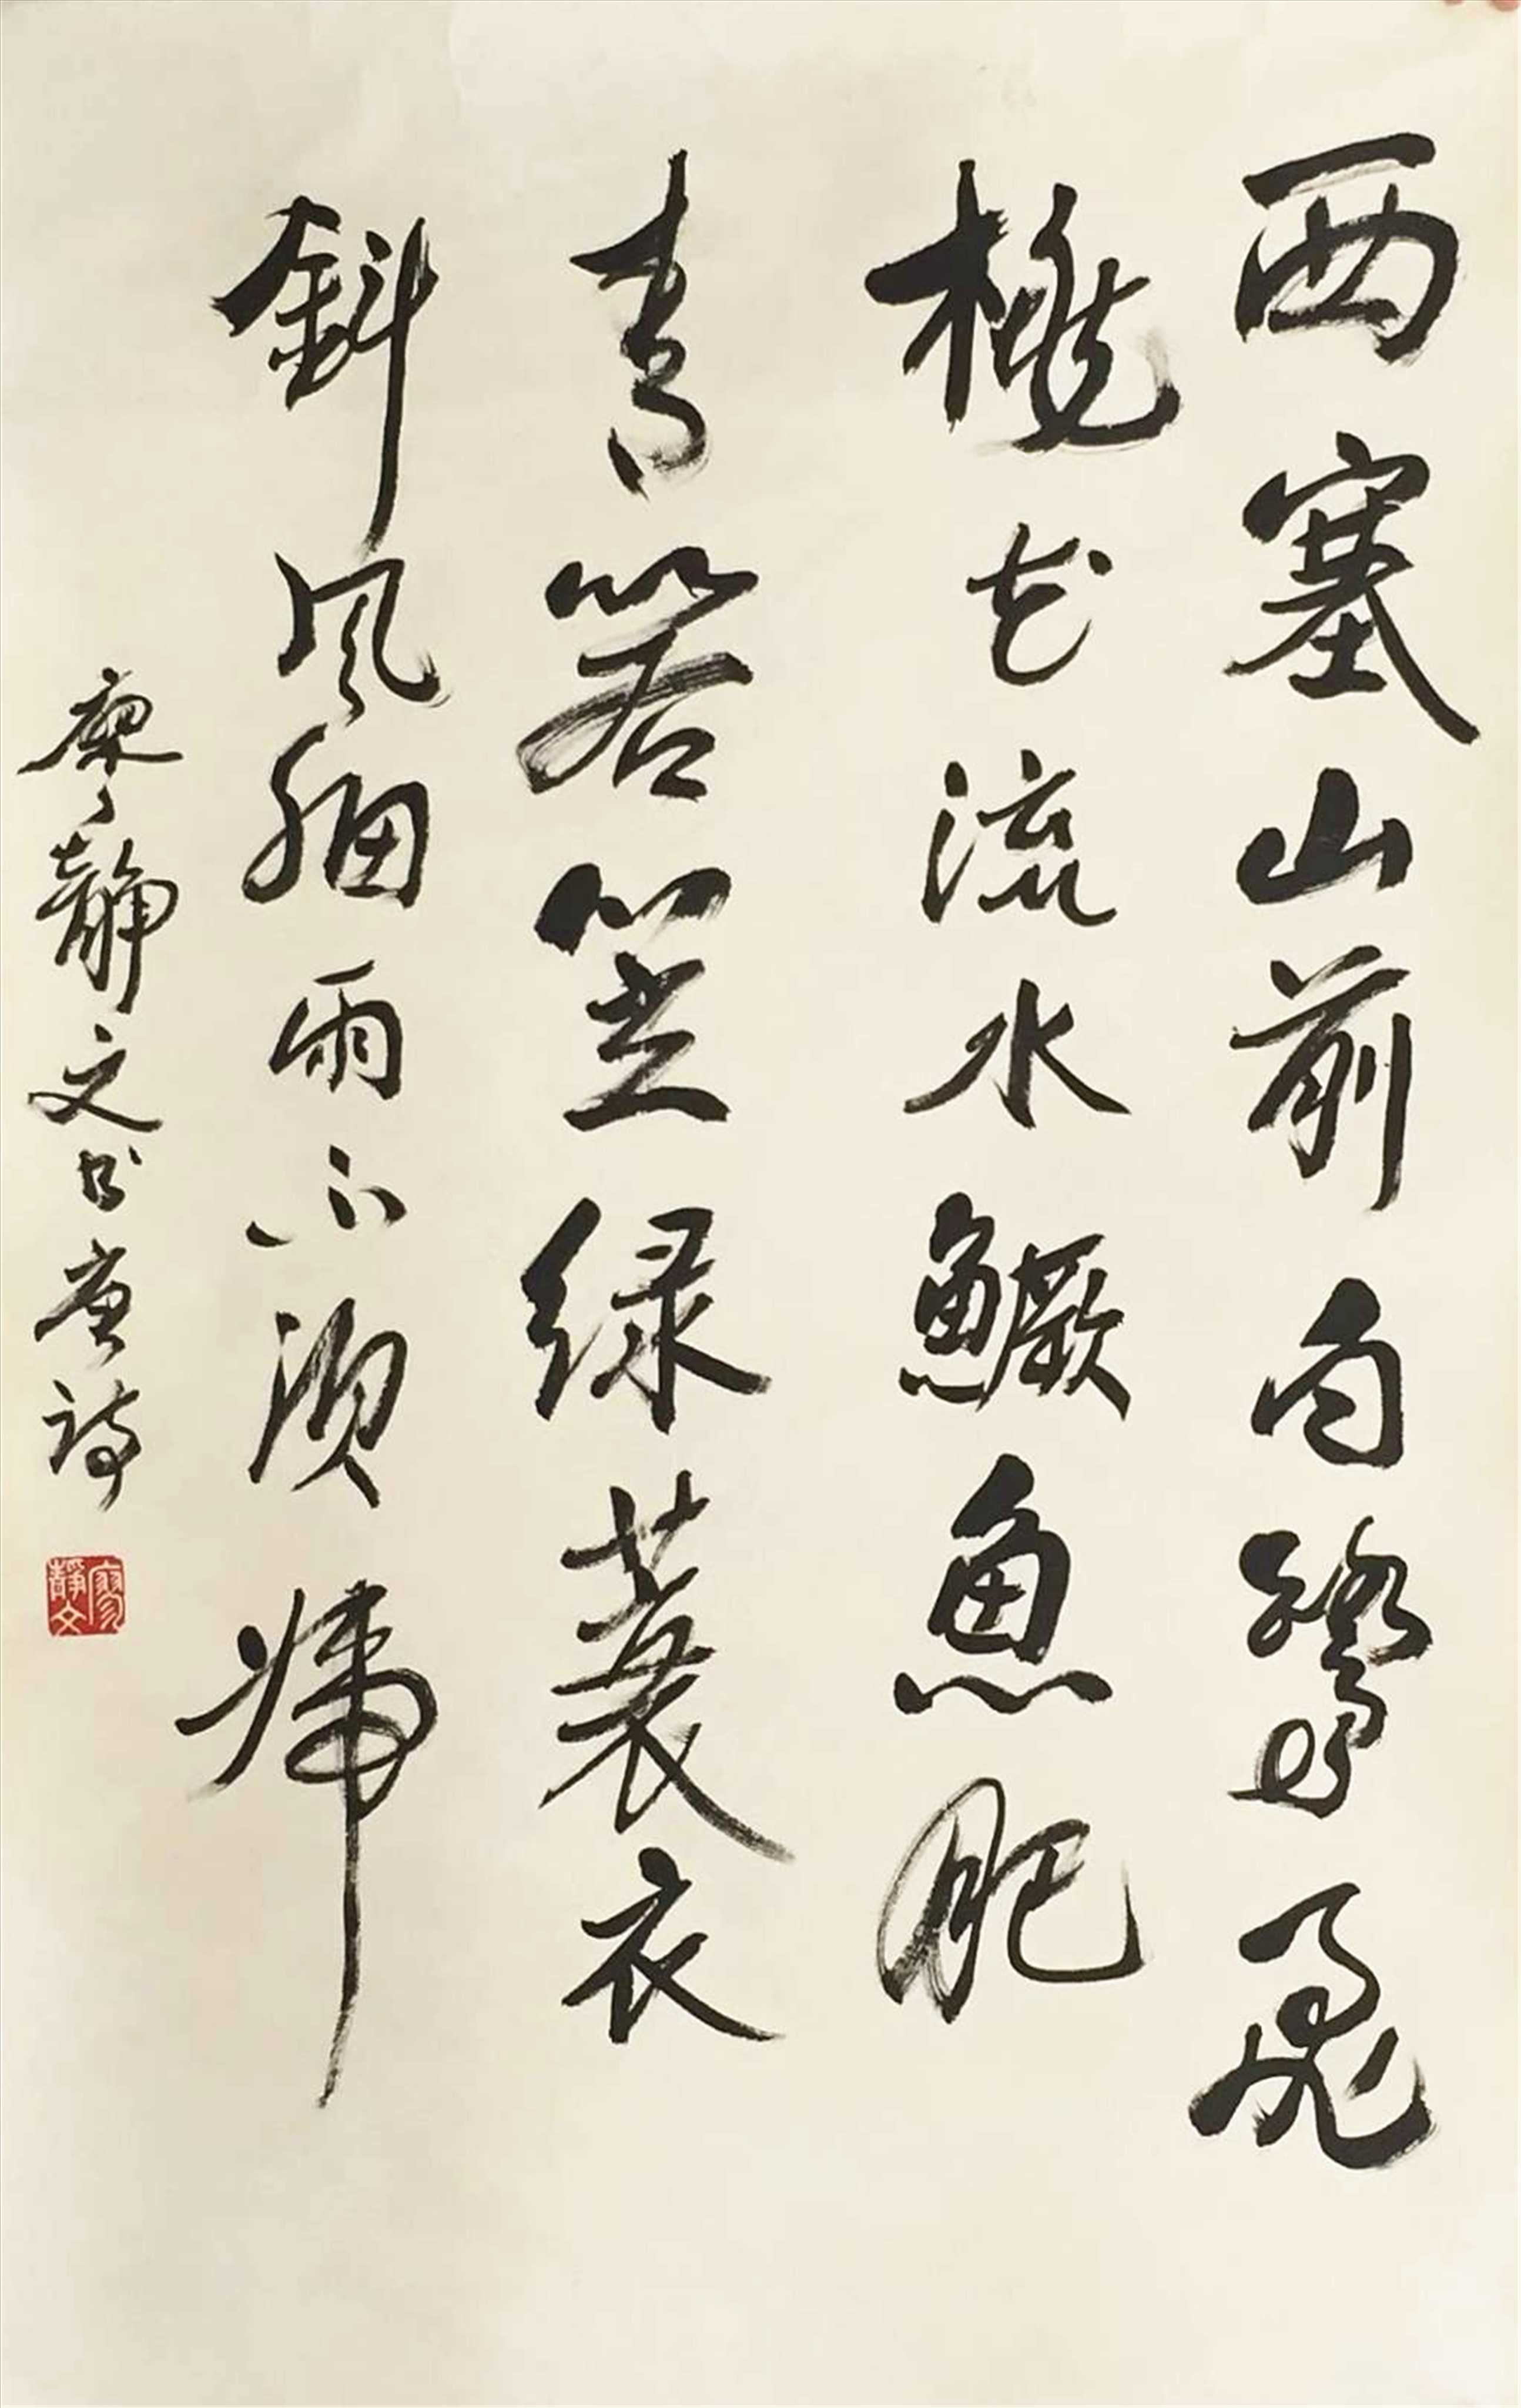 西塞山前白鹭飞
桃花流水鳜鱼肥
青箬笠绿蓑衣
斜风细雨不须归
廖静文书唐诗
廖靜文